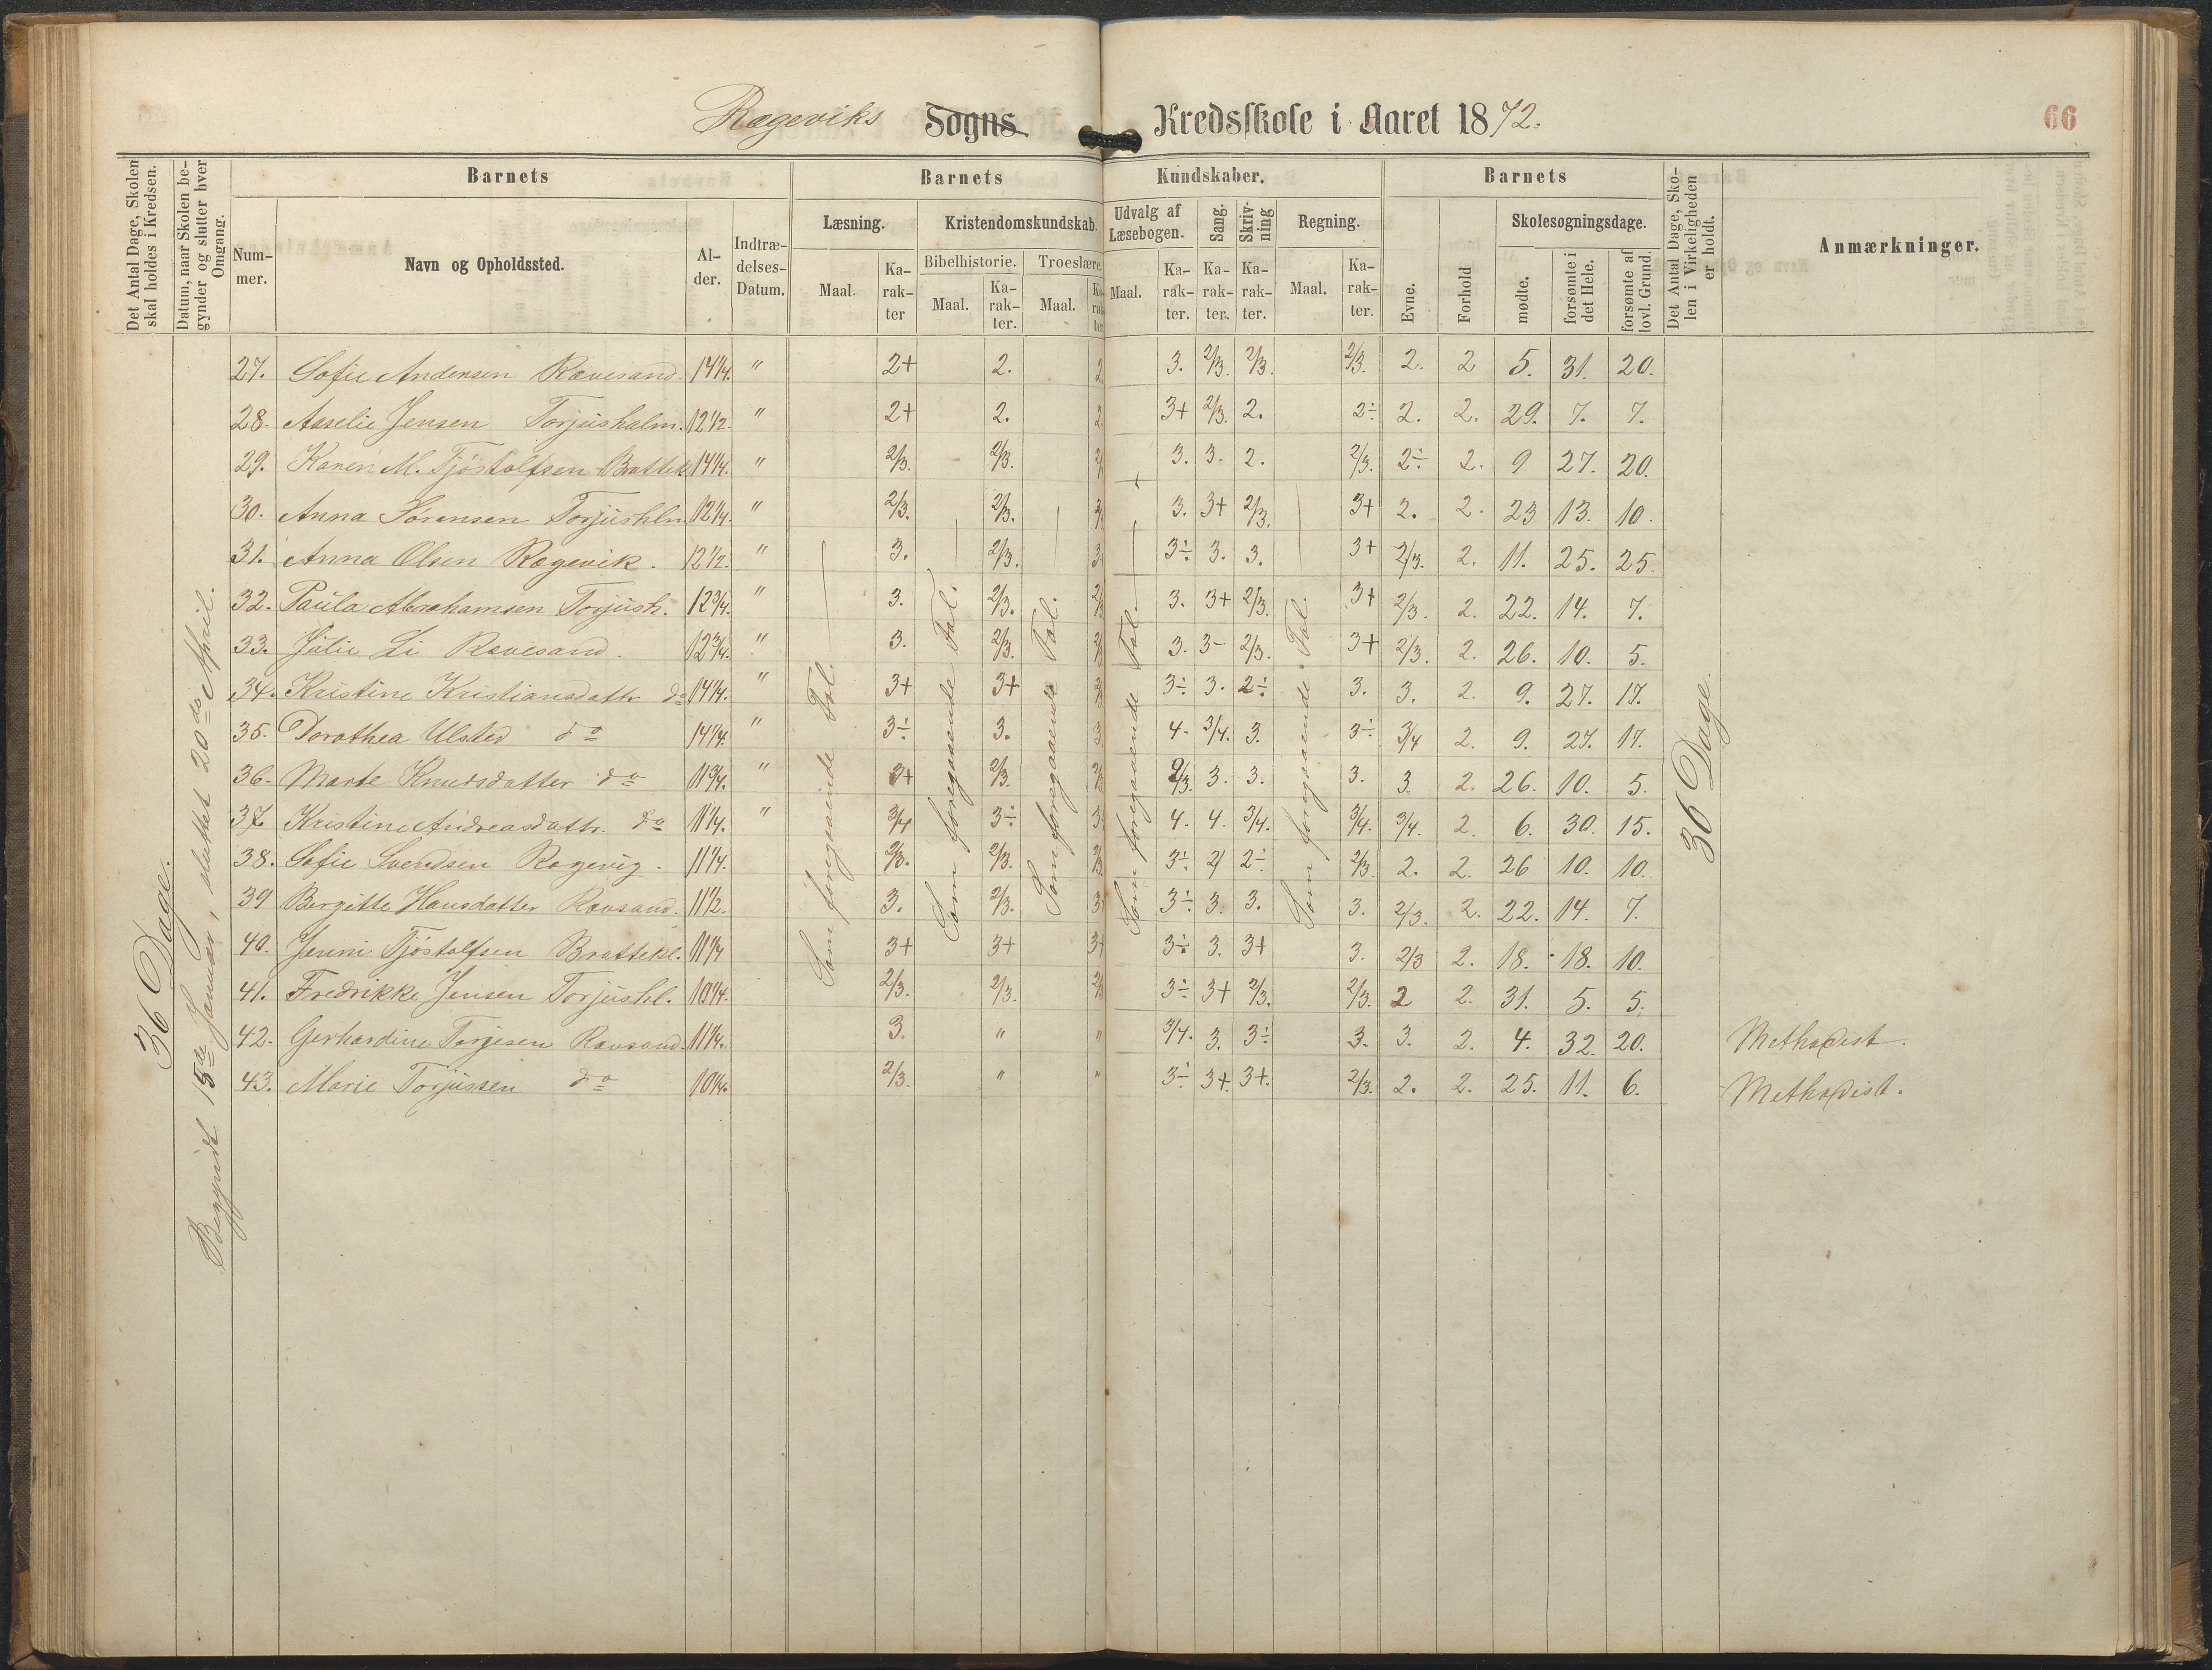 Rægeviks Sogns Kredsskole i Aaret 1872.
66
Det Antal Dage, Skolen skal holdes i Kredsen.
Datum, naar Skolen begynder og slutter hver Omgang.
Barnets
Nummer.
Navn og Opholdssted.
Alder.
Indtrædelses-Datum.
Barnets Kundskaber.
Læsning.
Maal.
Karakter
Kristendomskundskab.
Bibelhistorie.
Maal.
Karakter.
Troeslære.
Maal.
Karakter
Udvalg af Læsebogen.
Maal.
Karakter.
Sang.
Karakter.
Skrivning
Karakter.
Regning.
Maal.
Karakter.
Barnets
Evne.
Forhold
Skolesøgningsdage.
mødte.
forsømte i det Hele.
forsømte af lovl. Grund.
Det Antal Dage, Skolen i Virkeligheden er holdt.
Anmærkninger.
36 Dage.
Begyndt 15de Januar, sluttet 20de April.
27. Sofie Andersen Ravesand. 14 1/4. " 2+ 2. 2 3. 2/3. 2/3. 2/3. 2. 2 5. 31. 20.
28. Aaselie Jensen Torjusholm. 12 1/2. " 2+ 2. 2. 3+ 2/3. 2. 2÷ 2. 2. 29. 7. 7.
29. Karen M. Tjöstolfsen Brattek. 14 1/4. " 2/3. 2/3. 3. 3. 2. 2/3. 2÷ 2. 9 27. 20.
30. Anna Sörensen Torjushlm. 12 1/4. " 2/3. 2/3. 3. 3+ 2/3. 3+ 2. 2. 23 13. 10.
31. Anna Olsen Rægevik. 12 1/2. " 3. 2/3. 3. 3÷ 3. 3. 3+ 2/3. 2. 11. 25. 25.
32. Paula Abrahamsen Torjush. 12 3/4. " 3. 2/3. 2/3 3. 3+ 2/3. 3+ 2/3. 2. 22. 14. 7.
33. Julie Li Ravesand. 12 3/4. " 3. 2/3. 2/3 3. 3- 2/3. 3+ 2/3. 2. 26. 10. 5.
34. Kristine Kristiansdattr do 14 1/4. " 3+ 3+ 3÷ 3. 2÷ 3. 3. 2. 9. 27. 17.
35. Dorothea Ulsted do 14 1/4. " 3÷ 3. 3 4. 3/4. 3. 3÷ 3/4 2. 9. 27. 17.
36. Marte Knudsdatter do 11 3/4. " 3+ 2/3. 2/3 2/3. 3. 3. 3. 3. 2. 26. 10. 5.
37. Kristine Andreasdattr. do 11 1/4. " 3/4 3÷ 3 4. 4. 3/4. 3/4. 3/4. 2. 6. 30. 15.
38. Sofie Svendsen Rægevig. 11 1/4. 2/3. 2/3. 2/3. 3÷ 2÷ 2/3 2. 2. 26 10. 10.
39 Bergitte Hansdatter Ravsand. 11 1/2. 3. 2/3. 3 3÷ 3. 3. 3. 2/3. 2. 22. 14. 7.
40. Jenni Tjöstolfsen Brattekl. 11 1/4 3+ 3+ 3+ 3÷ 3. 3+ 3. 2/3 2. 18. 18. 10.
41. Fredrikke Jensen Torjushl. 10 1/4. 2/3. 2/3. 2/3 3÷ 3+ 2/3. 2/3. 2 2. 31. 5. 5.
42. Gerhardine Torgesen Ravsand. 11 1/4. 3. " " 3/4. 3. 3÷ 3. 3. 2. 4. 32. 20. Methodist.
43. Marie Torjussen do 10 1/4. 2/3. " " 3÷ 3+. 3+. 2/3. 2. 2. 25. 11. 6. Methodist.
Som foregaaende Tal.
Som foregaaende Tal.
Som foregaaende Tal.
Som foregaaende Tal.
Som foregaaende Tal.
36 Dage.